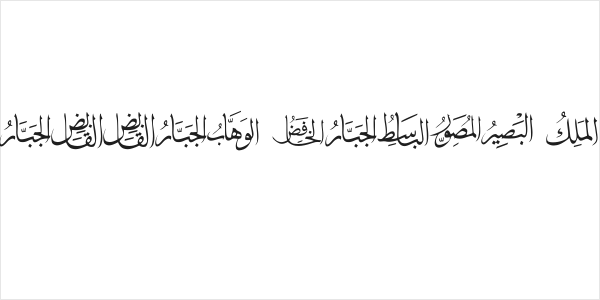 المَلِكُ البَصِيرُ المُصَوِّرُ البَاسِطُ الجَبَّارُ الخَافِضُ الوَهَّابُ الجَبَّارُ القَابِضُ القَابِضُ الجَبَّارُ